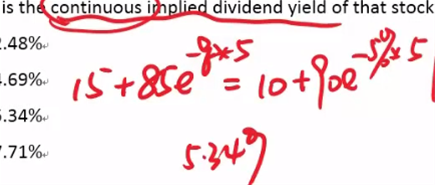 is the continuous implied dividend yield of that stock
2.48%
.69%
15+85e^-q×5 = 10+90e^-5%×5
.34%
.71%
5.34%